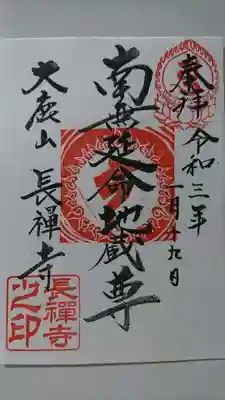 奉拝
令和三年
一月十九日
南無延命地蔵尊
大鹿山
長禪寺
長禪寺
之印